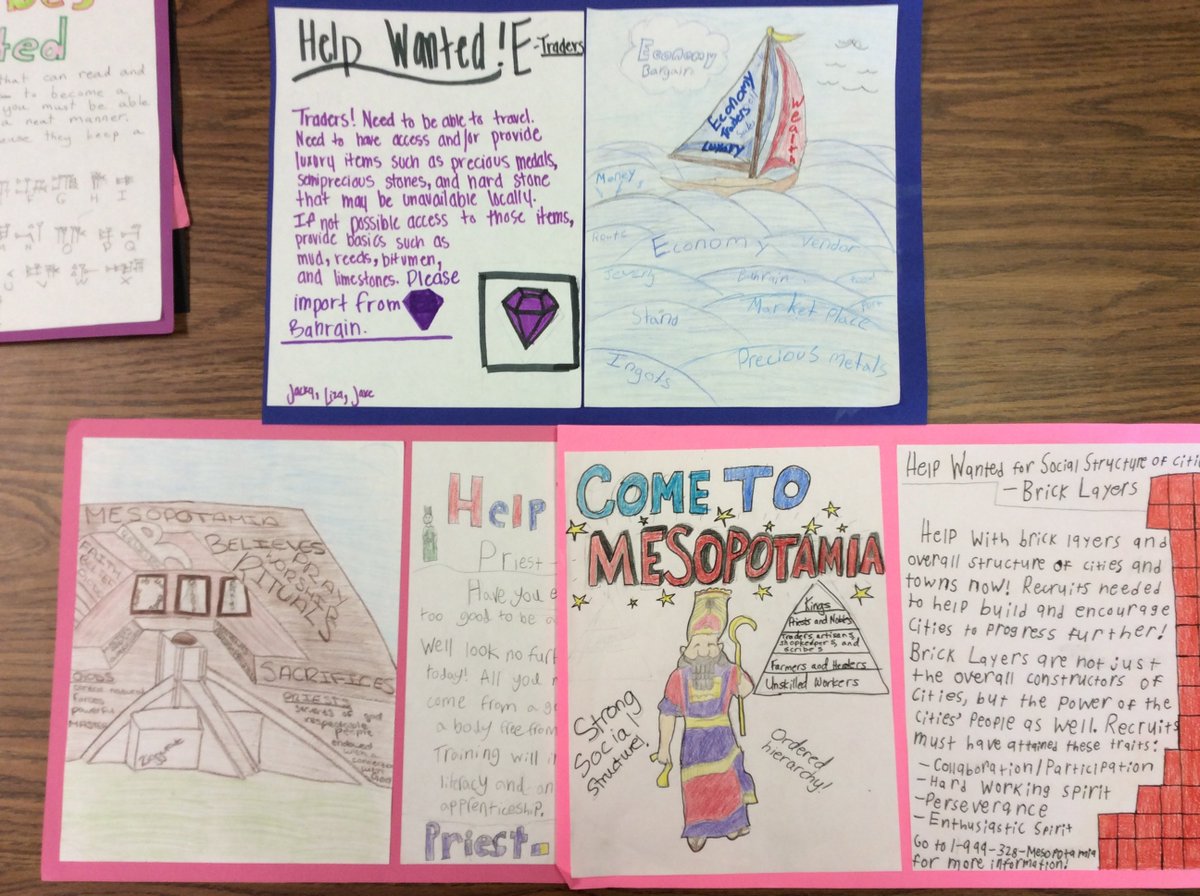 ted
that can read and
to become a
you must be able
a neat manner.
ause they keep a
F G H I
Q
V W X
Help Wanted! E-Traders
Traders! Need to be able to travel.
Need to have access and/or provide
luxury items such as precious medals,
semiprecious stones, and hard stone
that may be unavailable locally.
If not possible access to those items,
provide basics such as
mud, reeds, bitumen,
and limestones. Please
import from
Bahrain.
Economy
Bargain
Economy
Traders
Luxury
Wealth
Money
Route
Economy Vendor
Bahrain Food
Port
Stand Market Place
Ingots Precious Metals
MESOPOTAMIA
BELIEVES
PRAY
WORSHIP
RITUALS
FAITH
SACRIFICES
GODS
forces
powerful
PRIESTS
servants of god
respectable
people
endowed
with a
Help
Priest
Have you e
too good to be a
Well look no fur
today! All you n
come from a g
a body free from
Training will i
literacy and an
apprenticeship.
Priest
COME TO
MESOPOTAMIA
Kings
Priests and Nobles
Traders, artisans,
shopkeepers, and
scribes
Farmers and Herders
Unskilled Workers
Strong
Social
Structure!
Ordered
hierarchy!
Help Wanted for Social Structure of Citi
- Brick Layers
Help With brick layers and
overall structure of cities and
towns now! Recruits needed
to help build and encourage
Cities to Progress further!
Brick Layers are not just
the overall constructors of
Cities, but the power of the
cities' People as well. Recruits
must have attained these traits:
- Collaboration/Participation
- Hard Working Spirit
- Perseverance
- Enthusiastic Spirit
Go to 1-999-328-Mesopotamia
for more information!